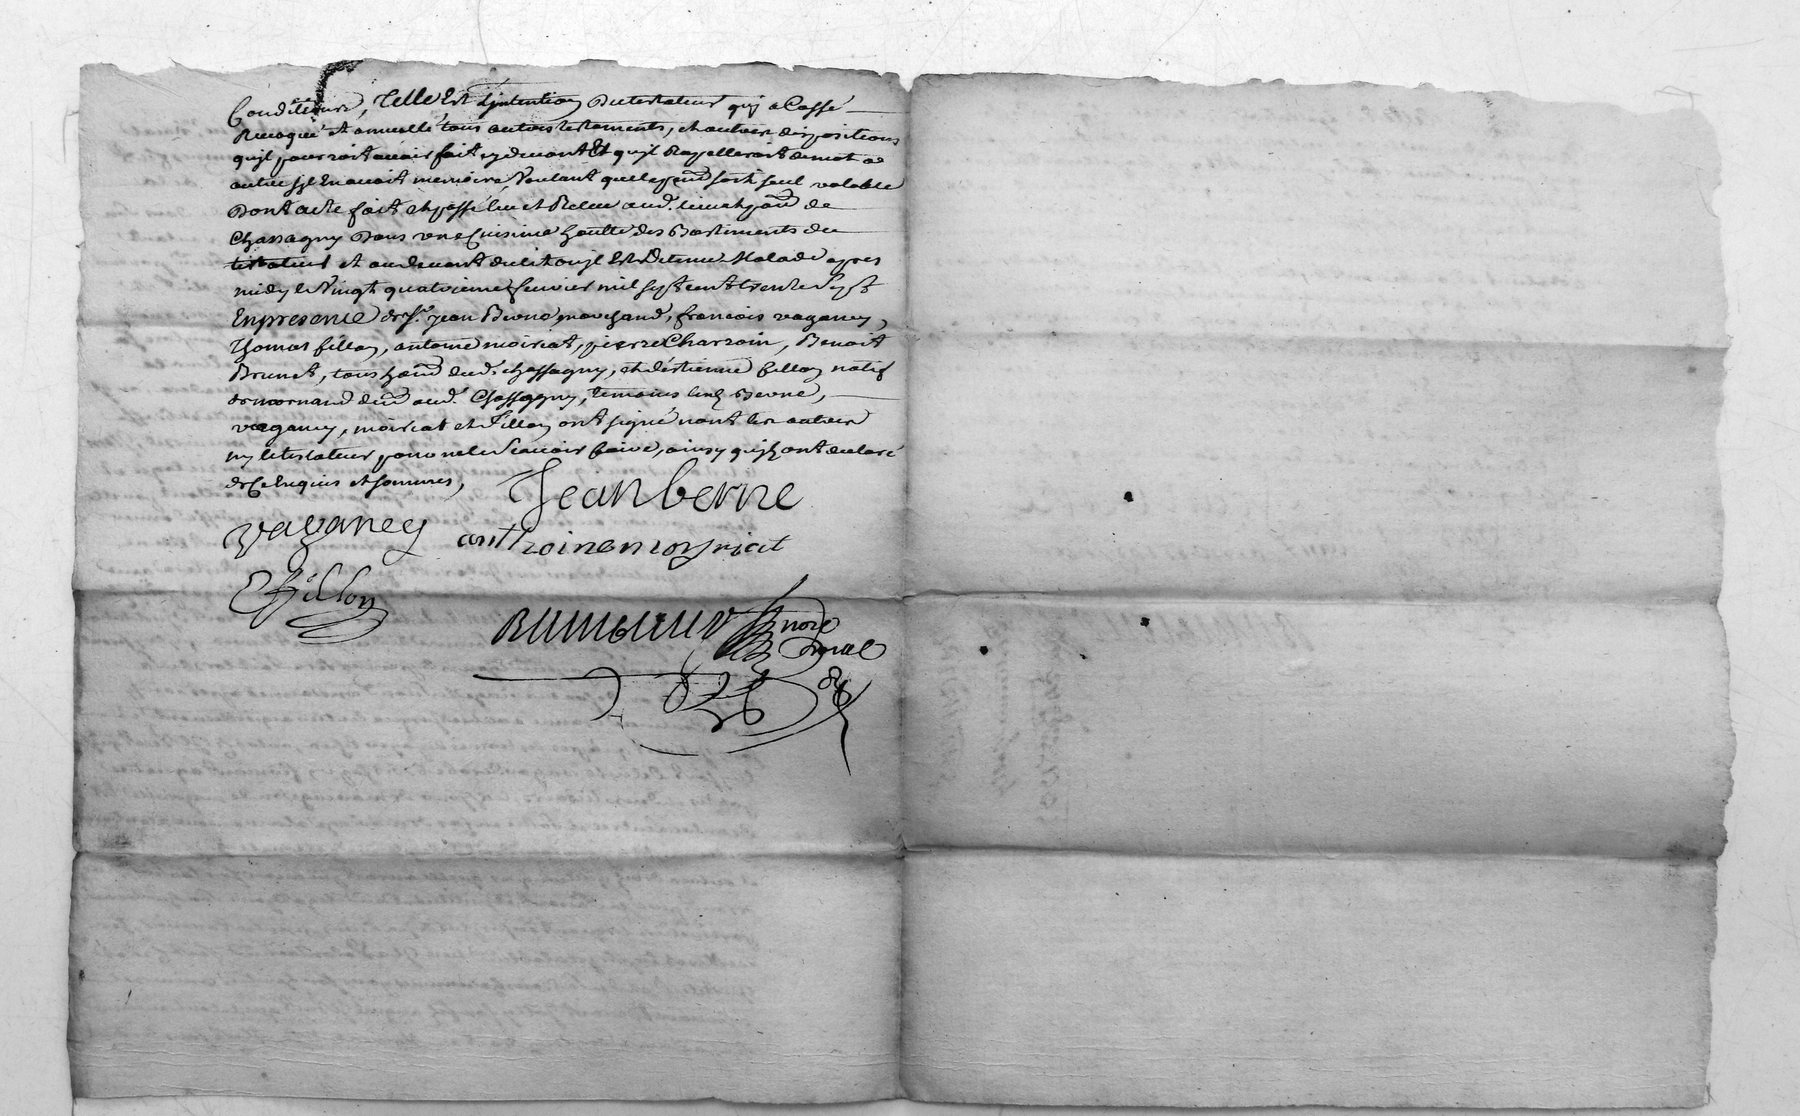 Conditions, Telle Est Lintention Du testateur quy a Cassé
Revoqué et annullé tous autres testaments, et autres dispositions
quil pourroit avoir fait cy devant Et quil Rapelleroit de mot a
autre sil En avoit memoire, Voulant que le pnt soit seul valable
Dont acte fait et passé leu et Releu aud. lieu et parr. de
Chassagny Dans une Cuisine haulte des Bastiments du
testateur et au devant du lit ou jl Est Detenu Malade apres
midy le Vingt quatrieme fevrier mil sept cent trente Sept
En presence de Sr. jean Berne marchand, francois vaganey,
Thomas fillon, antoine moiriat, pierre Charroin, Benoit
Brunet, tous hants dud. chassagny, et d'estienne fillon natif
de mornand dmt aud. Chassagny, temoins Berne,
vaganey, moiriat et Fillon ont signé non les autres
ny le testateur pour ne le Scavoir faire, ainsy quils ont declaré
de Ce Enquis et sommés,
Jean berne
vaganey anthoine moyriat
E fillon
nore
Royal